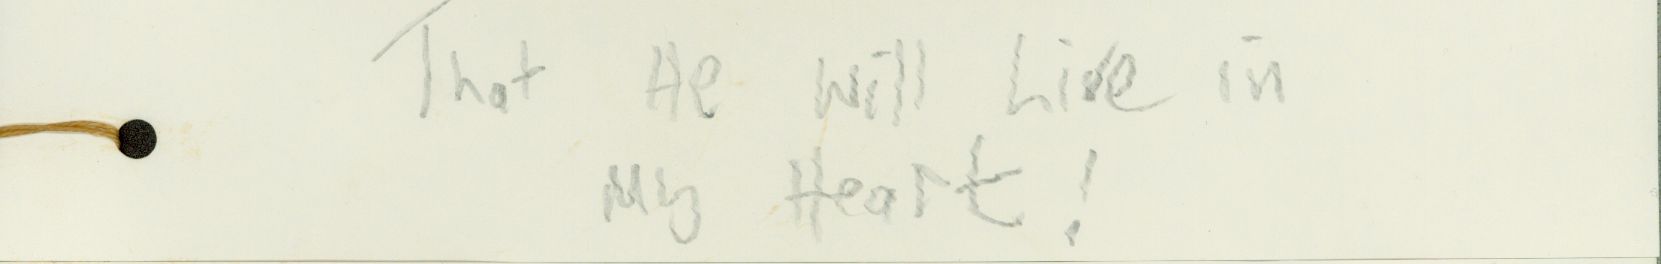 That He will Live in
My Heart!